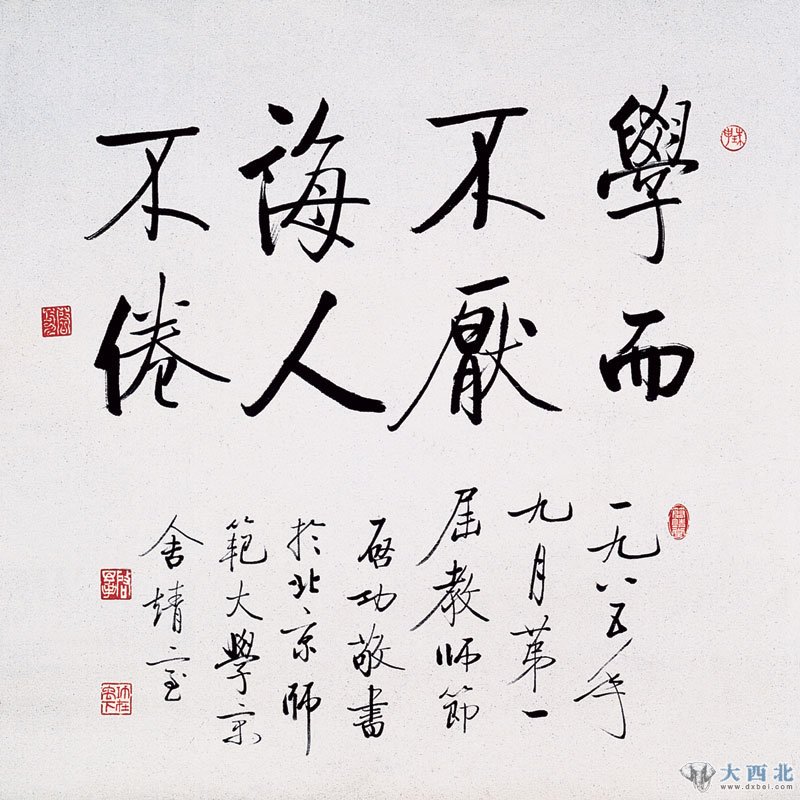 學而
不厭
誨人
不倦
一九八五年
九月第一
屆教師節
启功敬書
於北京師
範大學
舍
大西北
www.dxbei.com